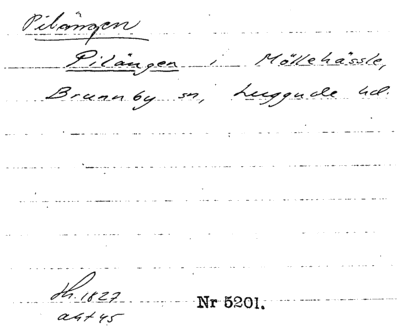 Pilängen
Pilängen i Möllehässle,
Brunnby sn, Luggude hd.
sk. 1827
akt 45
Nr 5201.